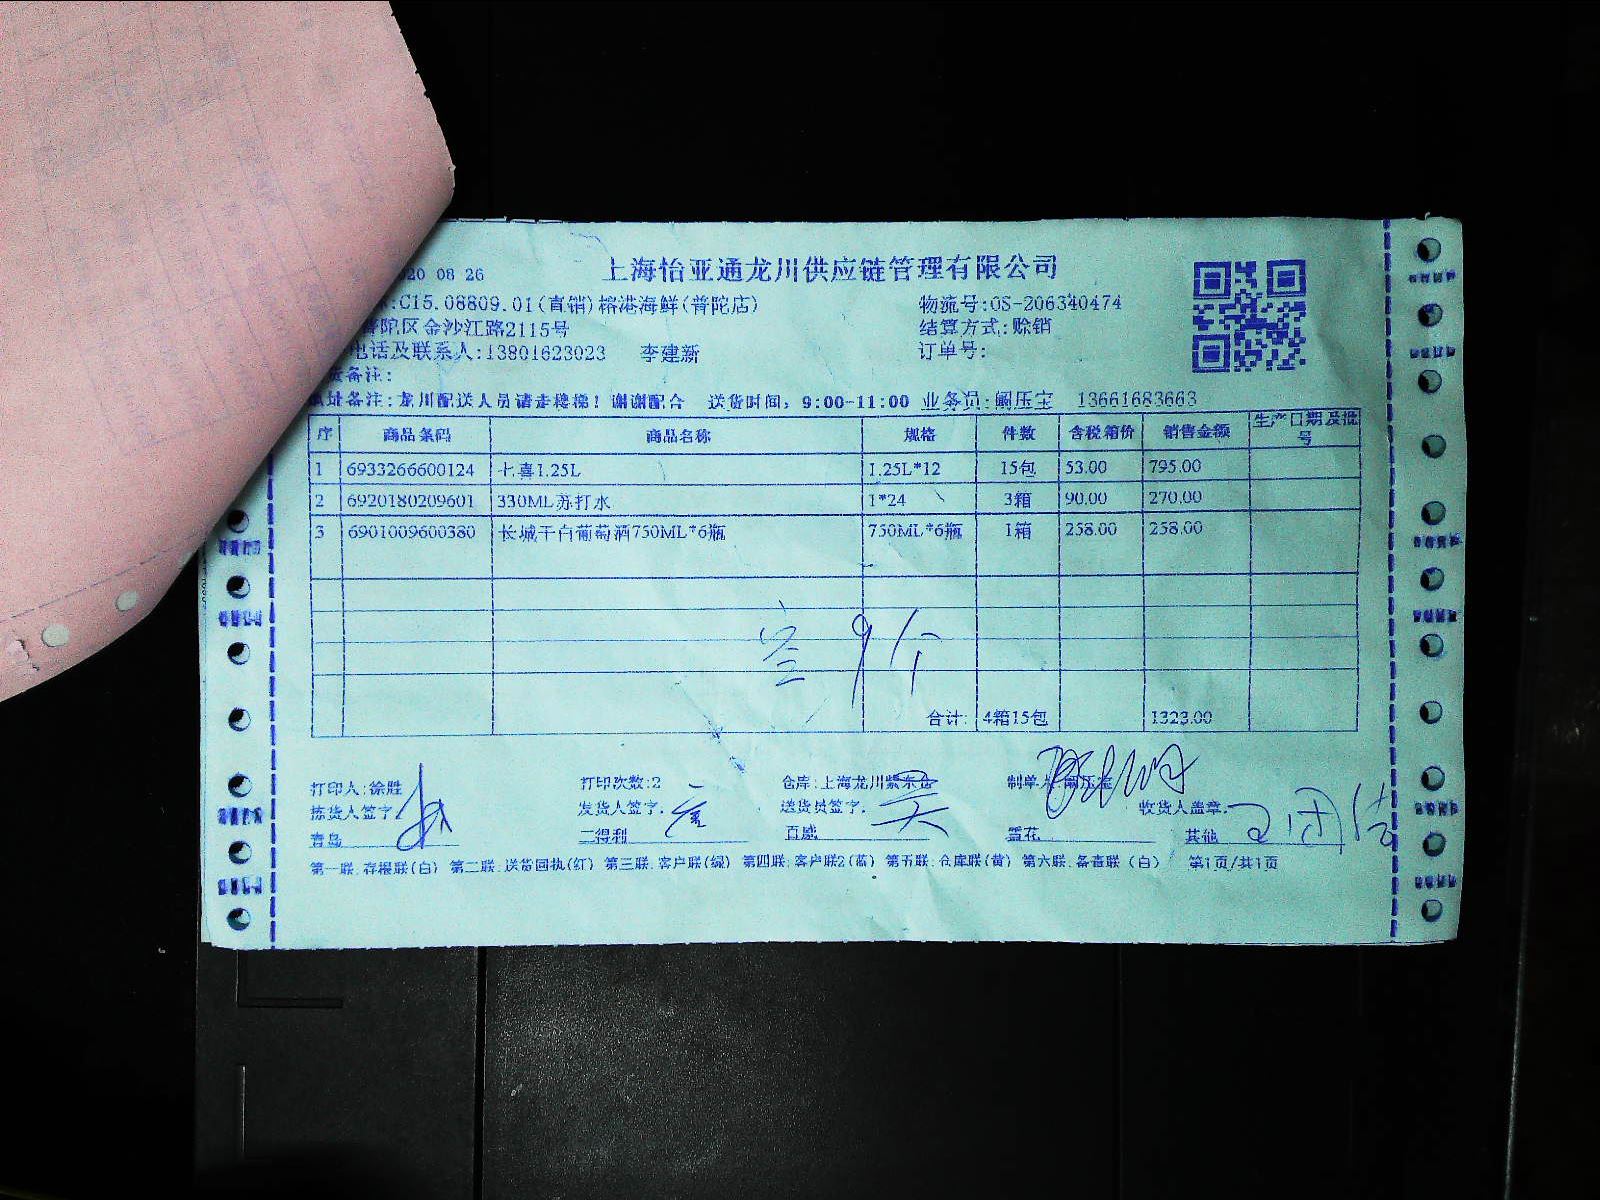 20 08 26
上海怡亚通龙川供应链管理有限公司
:C15.08809.01(直销)榕港海鲜(普陀店)
物流号:OS-206340474
普陀区金沙江路2115号
结算方式:赊销
电话及联系人:13801623023 李建新
订单号:
备注:
地址备注:龙川配送人员请走楼梯!谢谢配合 送货时间:9:00-11:00 业务员:阚压宝 13661683663
序 商品条码 商品名称 规格 件数 含税箱价 销售金额 生产日期及批号
1 6933266600124 七喜1.25L 1.25L*12 15包 53.00 795.00
2 6920180209601 330ML苏打水 1*24 3箱 90.00 270.00
3 6901009600380 长城干白葡萄酒750ML*6瓶 750ML*6瓶 1箱 258.00 258.00
空9个
合计: 4箱15包 1323.00
打印人:徐胜 打印次数:2 仓库:上海龙川紫东仓 制单人:阚压宝
拣货人签字: 发货人签字: 送货员签字: 收货人盖章:
青岛 三得利 百威 雪花 其他
第一联:存根联(白) 第二联:送货回执(红) 第三联:客户联(绿) 第四联:客户联2(蓝) 第五联:仓库联(黄) 第六联:备查联(白) 第1页/共1页